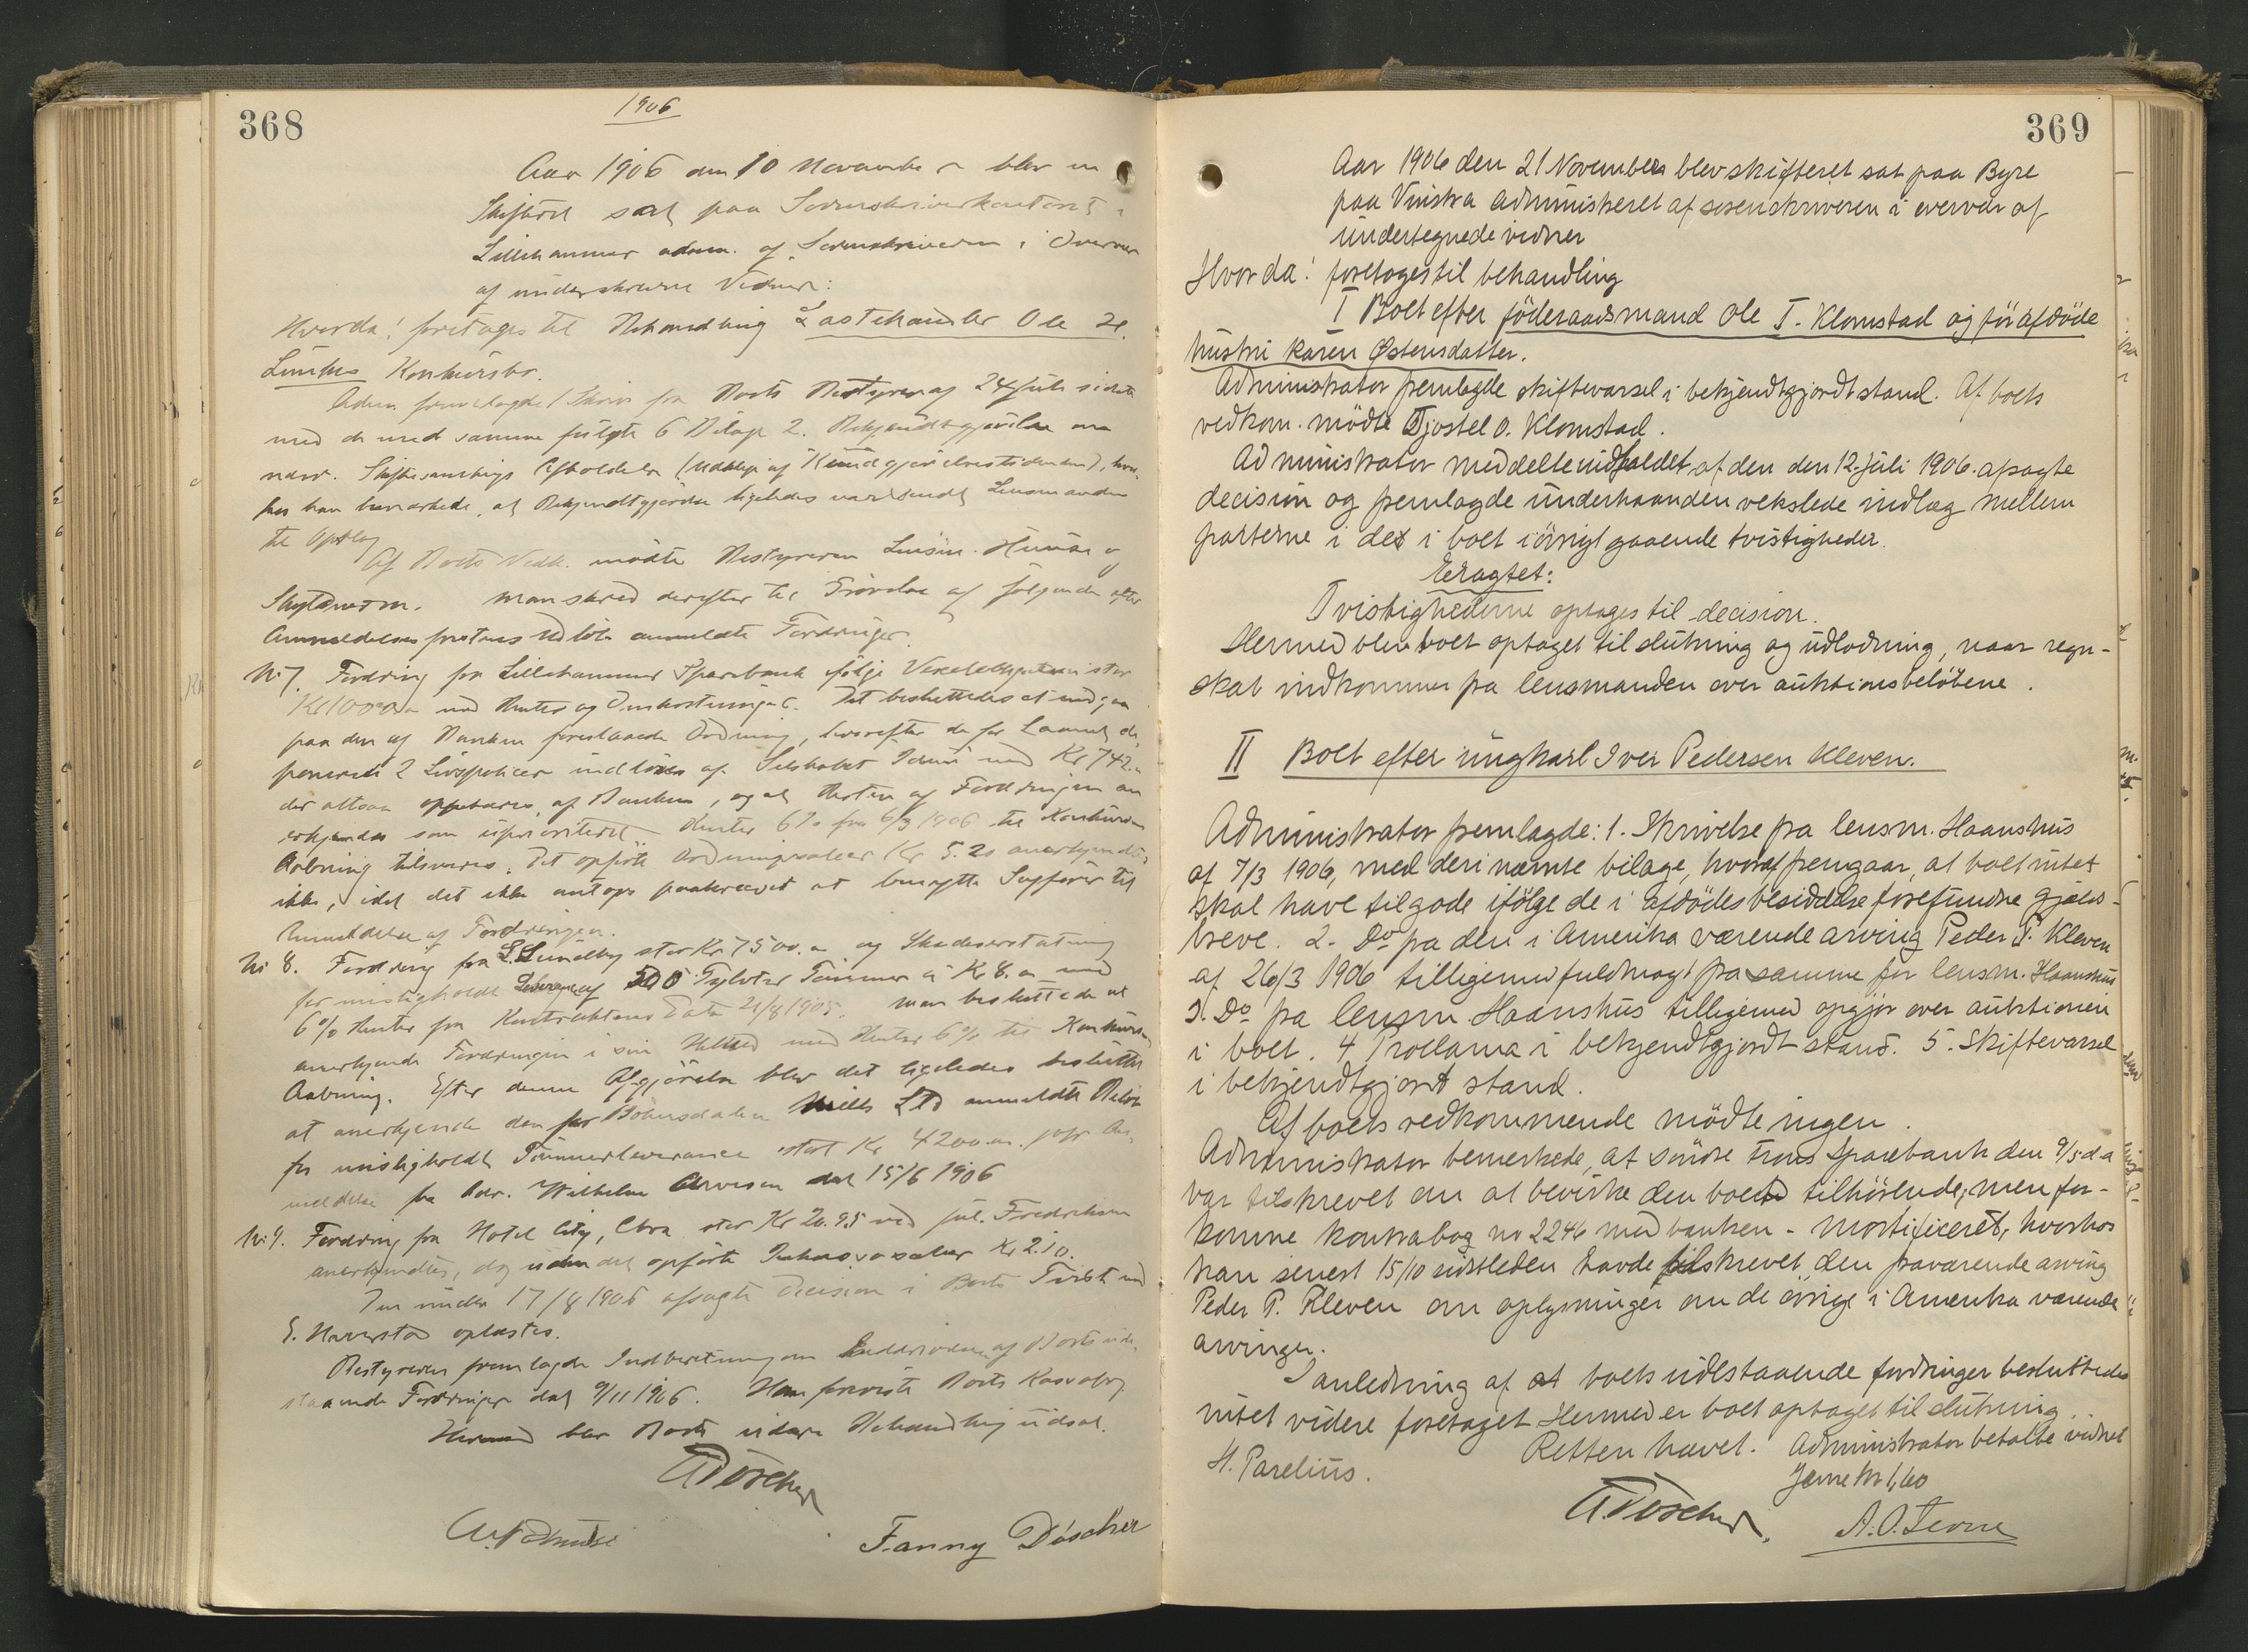 368
1906
Aar 1906 den 10 November blev en
Skifteret sat paa Sorenskriverkontoret i
Lillehammer adm. af Sorenskriveren i Overvær
af underskrevne Vidner:
Hvorda! foretages til Behandling Lastehandler Ole H.
Lunkes Konkursbo.
Adm. fremlagde 1 Skriv fra Boets Bestyrer af 24 Juli sidste
med de med samme fulgte 6 Bilage 2. Bekjendtgjørelse om
nærv. Skiftesamlings Afholdelse (Udklip af Kundgjørelsestidenden), hvor-
hos han bemærkede, at Bekjendtgjørelse ligeledes var sendt Lensmanden
til Opslag
Af Boets Vedk. mødte Bestyreren Lensm. Hunse og
Skyldneren. Man skred derefter til Prøvelse af følgende efter
Anmeldelsesfristens Udløb anmeldte Fordringer.
No 7. Fordring fra Lillehammer Sparebank ifølge stor
Kr 1000.00 med Renter og Omkostninger. Det besluttedes at indgaa
paa den af Banken foreslaaede Ordning, hvorefter de for Laanet de-
ponerede 2 Livspolicer indløses af Selskabet Idun med Kr 742.00
der altsaa oppebæres af Banken, og at Resten af Fordringen an-
erkjendes som uprioriteret Renter 6% fra 6/3 1906 til Konkursens
Aabning tilsvares. Det opførte Kr 5.20 anerkjendes
ikke, idet det ikke antages paakrævet at benytte Sagfører til
Anmeldelse af Fordringen.
No 8. Fordring fra L. Lundby stor Kr. 7500.00 og Skadeserstatning
for misligholdt Leverance af 500 Tylvter Tømmer à Kr 8.00 med
6% Renter fra Kontraktens Data 21/8 1905. Man besluttede at
anerkjende Fordringen i sin Helhed med Renter 6% til Konkursens
Aabning. Efter denne Afgjørelse blev det ligeledes besluttet
at anerkjende den for Bøhnsdalen Mills Ltd anmeldte Beløb
for misligholdt Tømmerleverance stort Kr 4200.00 jvfr An-
meldelse fra Adv. Wilhelm dat 15/6 1906
No 9. Fordring fra Hotel City, Chra stor Kr 20.95 ved Jul. Fredriksen
anerkjendtes, dog uden det opførte Inkassosalær Kr 2.10.
Den under 17/8 1906 afsagte Decision i Boets Tvist med
E. Haverstad oplæstes.
Bestyreren fremlagde Indberetning om Inddrivelsen af Boets ude-
staaende Fordringer dat 9/11 1906. Han foreviste Boets Kassabog
Hermed blev Boets videre Behandling udsat.
A Döscher
Fanny Döscher
369
Aar 1906 den 21 November blev skifteret sat paa Byre
paa Vinstra administreret af sorenskriveren i overvær af
undertegnede vidner
Hvorda! foretoges til behandling
I Boet efter föderaadsmand Ole T. Klomstad og för afdöde
hustru Karen Østensdatter.
Administrator fremlagde skiftevarsel i bekjendtgjordt stand. Af boets
vedkom. mödte Tjostel O. Klomstad.
Administrator meddelte indholdet af den den 12. juli 1906 afsagte
decision og fremlagde underhaanden vekslede indlæg mellem
parterne i det i boet iövrigt gaaende tvistigheder.
Eragtet:
Tvistighederne optages til decision.
Hermed blev boet optaget til slutning og udlodning, naar regn-
skab indkommer fra lensmanden over auktionsbelöbene.
II Boet efter ungkarl Iver Pedersen Kleven.
Administrator fremlagde: 1. Skrivelse fra lensm. Haanshus
af 7/3 1906, med deri nævnte bilage, hvoraf fremgaar, at boet intet
skal have tilgode ifölge de i afdödes besiddelse forefundne gjælds-
breve. 2. Do fra den i Amerika værende arving Peder P. Kleven
af 26/3 1906 tilligemed fuldmagt fra samme for lensm. Haanshus
3. Do fra lensm Haanshus tilligemed opgjör over auktionen
i boet. 4 Proclama i bekjendtgjordt stand. 5. Skiftevarsel
i bekjendtgjort stand.
Af boets vedkommende mödte ingen.
Administrator bemerkede, at söndre Frons Sparebank den 9/5 d.a
var tilskrevet om at bevirke den boet tilhörende, men for-
komne kontrabog no 2246 med banken - mortificeret, hvorhos
han senest 15/10 sidstleden havde tilskrevet den fraværende arving
Peder P. Kleven om oplysninger om de övrige i Amerika værende
arvinger.
I anledning af at boets udestaaende fordringer besluttedes
intet videre foretaget Hermed er boet optaget til slutning.
Retten hævet. Administrator betalte vidnet
Jerne kr 1,60
H. Parelius.
A. Döscher.
A. O. Jerne